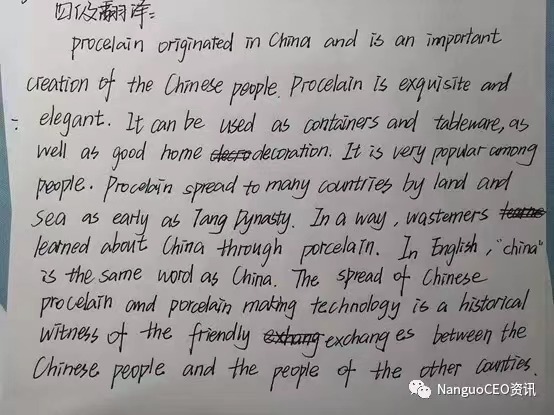 四级翻译:
procelain originated in China and is an important
creation of the Chinese people. Procelain is exquisite and
elegant. It can be used as containers and tableware, as
well as good home decro decoration. It is very popular among
people. Procelain spread to many countries by land and
sea as early as Tang Dynasty. In a way, wasterners learne
learned about China through porcelain. In English, "china"
is the same word as China. The spread of Chinese
procelain and porcelain making technology is a historical
witness of the friendly exhang exchanges between the
Chinese people and the people of the other counties.
NanguoCEO资讯